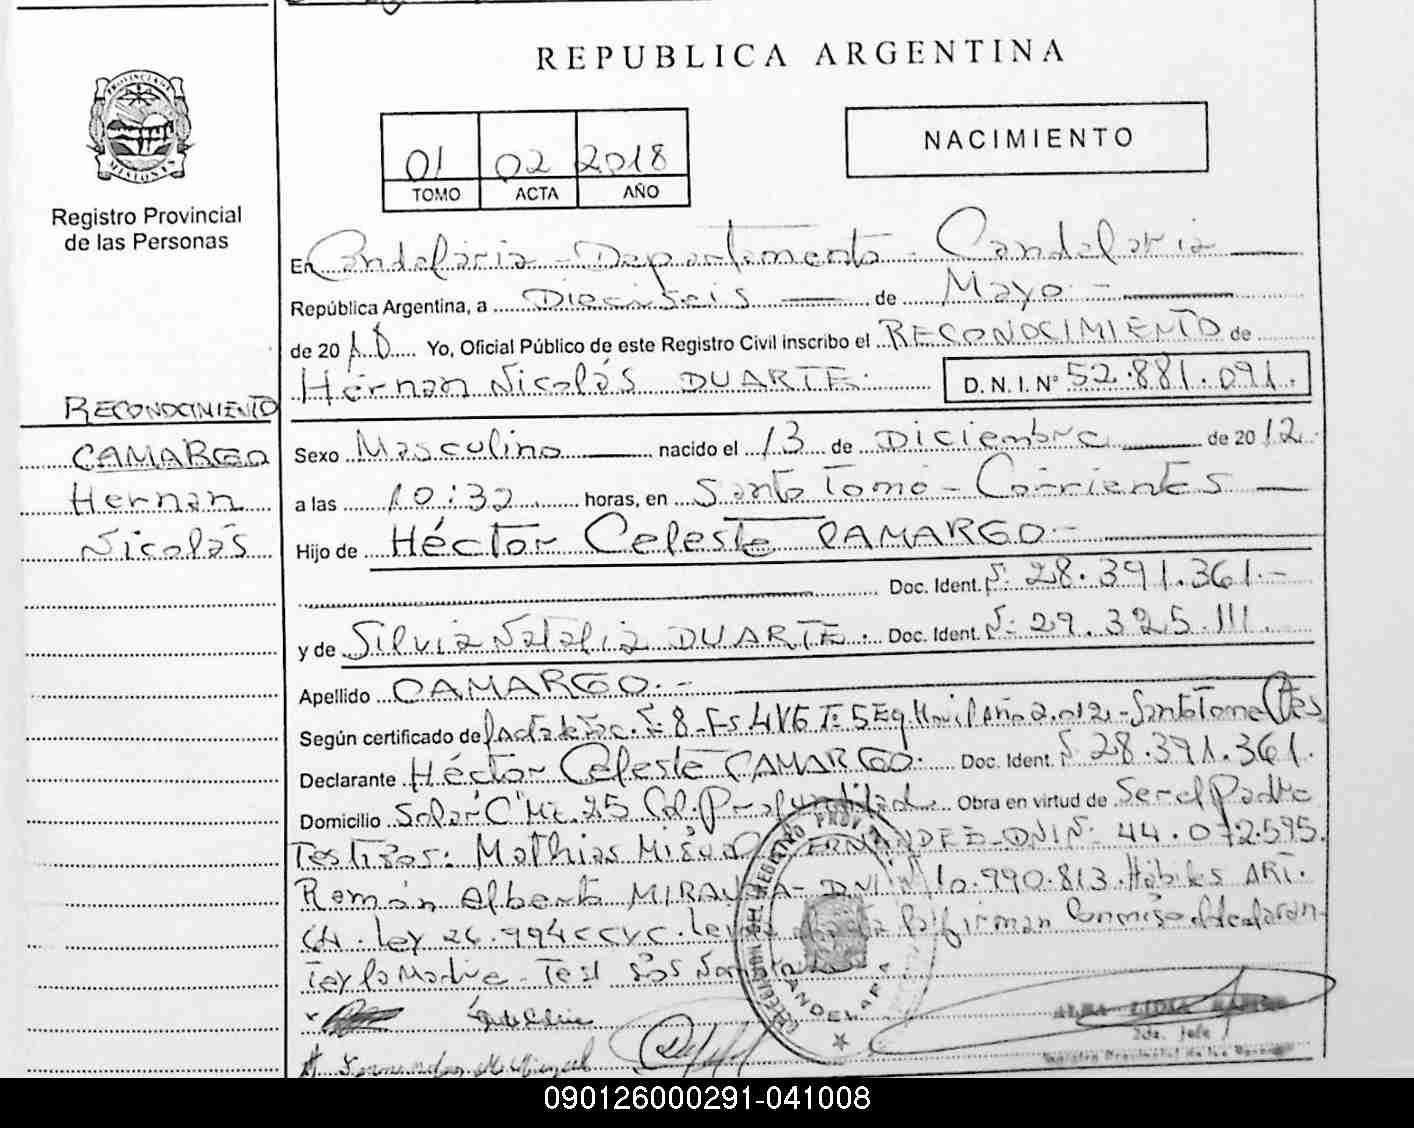 REPUBLICA ARGENTINA
PROVINCIA DE
MISIONES
Registro Provincial
de las Personas
01 02 2018
TOMO ACTA AÑO
NACIMIENTO
En Candelaria - Departamento - Candelaria
República Argentina, a Dieciseis de Mayo -
de 20 18 Yo, Oficial Público de este Registro Civil inscribo el RECONOCIMIENTO de
Hernan Nicolás DUARTE. D.N.I. Nº 52.881.091.
RECONOCIMIENTO
CAMARGO
Hernan
Nicolás
Sexo Masculino nacido el 13 de Diciembre de 20 12
a las 10:32 horas, en Santo Tomé - Corrientes
Hijo de Héctor Celeste CAMARGO -
Doc. Ident. Nº 28.391.361.-
y de Silvia Natalia DUARTE. Doc. Ident. Nº 29.325.111.
Apellido CAMARGO. -
Según certificado de Acta de Nac. Nº 8 - Fs 4 Vº Tº 5 Año 2.012 - Santo Tome Ctes
Declarante Héctor Celeste CAMARGO. Doc. Ident. Nº 28.391.361.
Domicilio Solar "C" Mz. 25 Col. Profundidad Obra en virtud de Ser el Padre
Testigos: Mathias Miguel FERNANDEZ - DNI Nº 44.072.595.
Román Alberto MIRANDA - DNI Nº 10.990.813. Hábiles ART.
Ley 26.994 CCYC. Leida Acta firman Conmigo el declaran-
te y la Madre. Testigos
2da. Jefe
Registro Provincial de las Personas
090126000291-041008